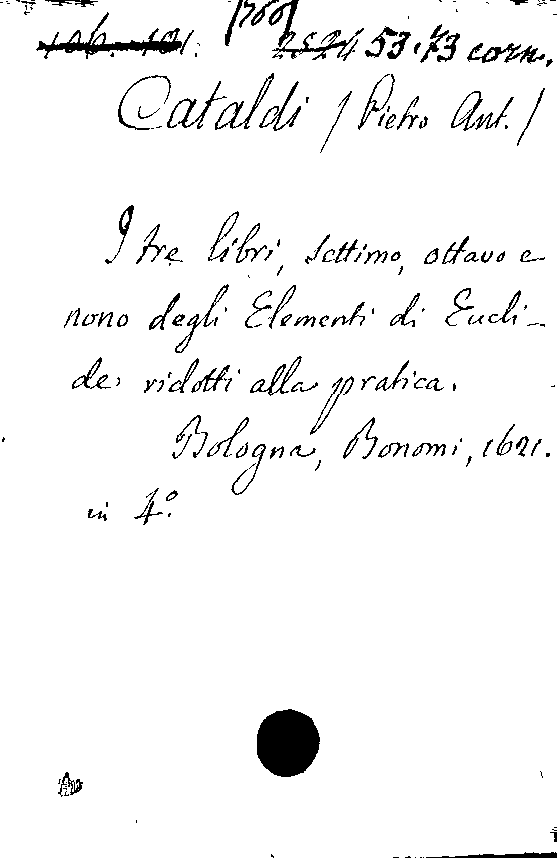 1700
106. 101. 2524 53.73 corn.
Cataldi / Pietro Ant. /
I tre libri, settimo, ottavo e
nono degli Elementi di Eucli-
de, ridotti alla pratica.
Bologna, Bonomi, 1621.
in 4°.